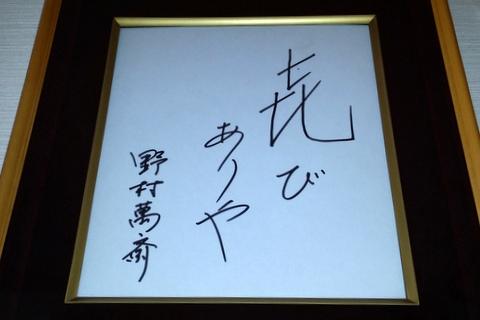 㐂び
ありや
野村萬斎